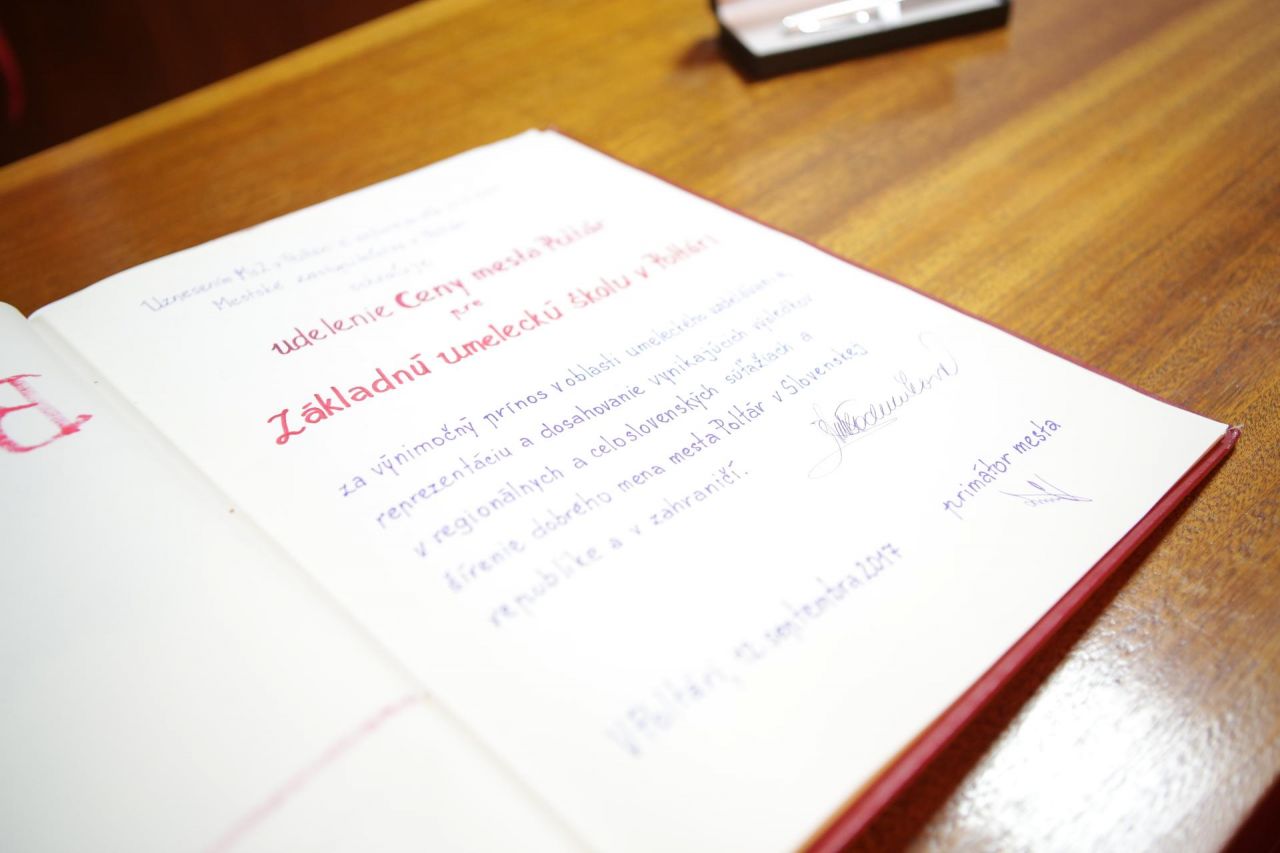 B
Uznesenie MsZ v
Mestské zastupiteľstvo v
schvaľuje
udelenie Ceny mesta Poltár
pre
Základnú umeleckú školu v Poltári
za výnimočný prínos v oblasti umeleckého vzdelávania,
reprezentáciu a dosahovanie vynikajúcich výsledkov
v regionálnych a celoslovenských súťažiach a
šírenie dobrého mena mesta Poltár v Slovenskej
republike a v zahraničí.
primátor mesta
V Poltári, 12. septembra 2017